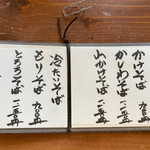 かけそば 九〇〇円
かしわそば 一二〇〇円
山かけそば 一二五〇円
冷たいそば
もりそば 九〇〇円
とろろそば 一二五〇円